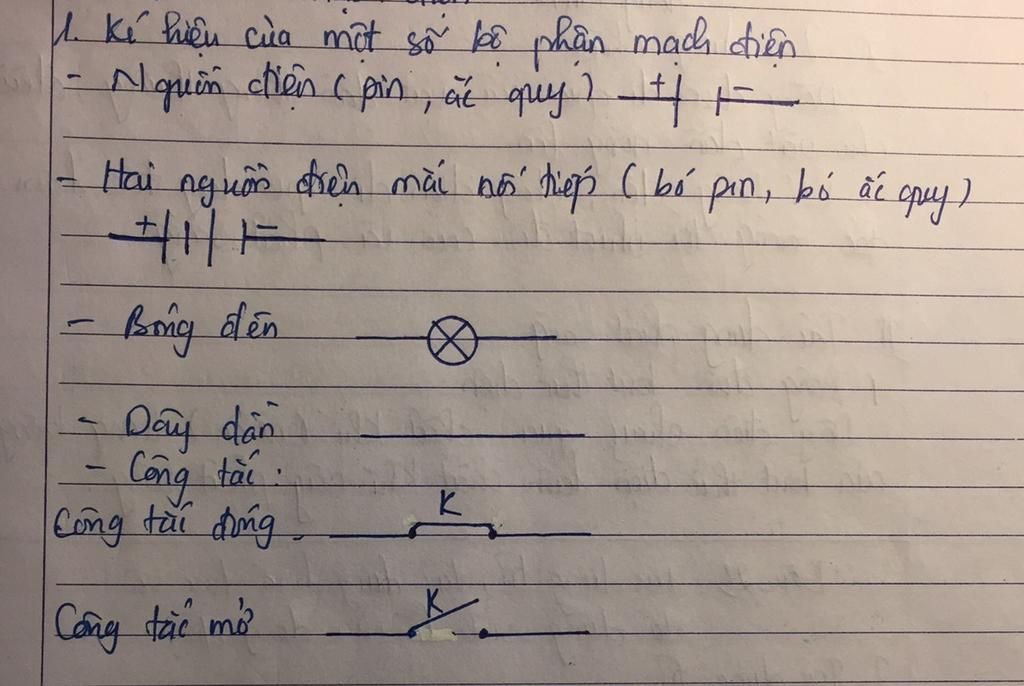 1. Kí hiệu của một số bộ phận mạch điện
- Nguồn điện (pin, ắc quy) + -
- Hai nguồn điện mắc nối tiếp (bó pin, bó ắc quy)
+ -
- Bóng đèn
- Dây dẫn
- Công tắc :
K
Công tắc đóng -
K
Công tắc mở